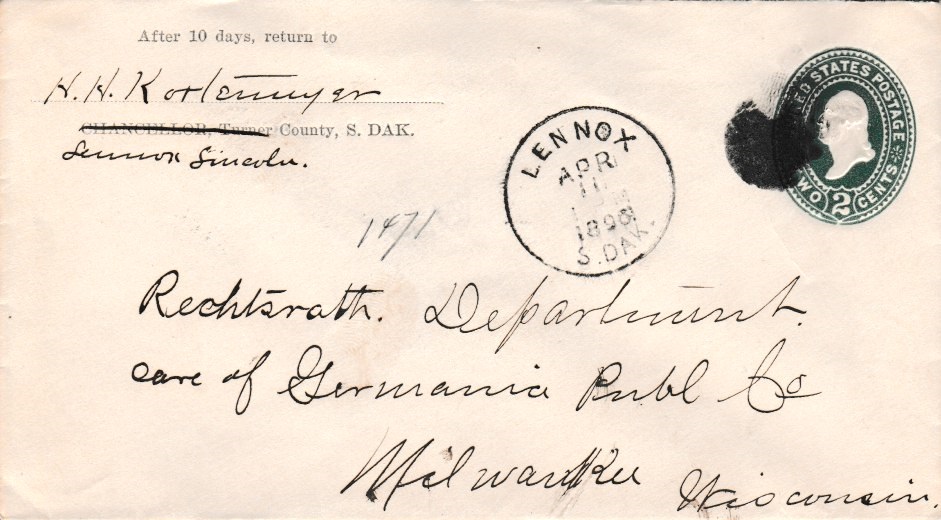 After 10 days, return to
H. H. Kortemeyer
CHANCELLOR, Turner County, S. DAK.
Lennox Lincoln.
LENNOX
APR
1896
S. DAK.
UNITED STATES POSTAGE
TWO 2 CENTS
1471
Rechtsrath. Department.
care of Germania Publ Co
Milwaukee
Wisconsin.